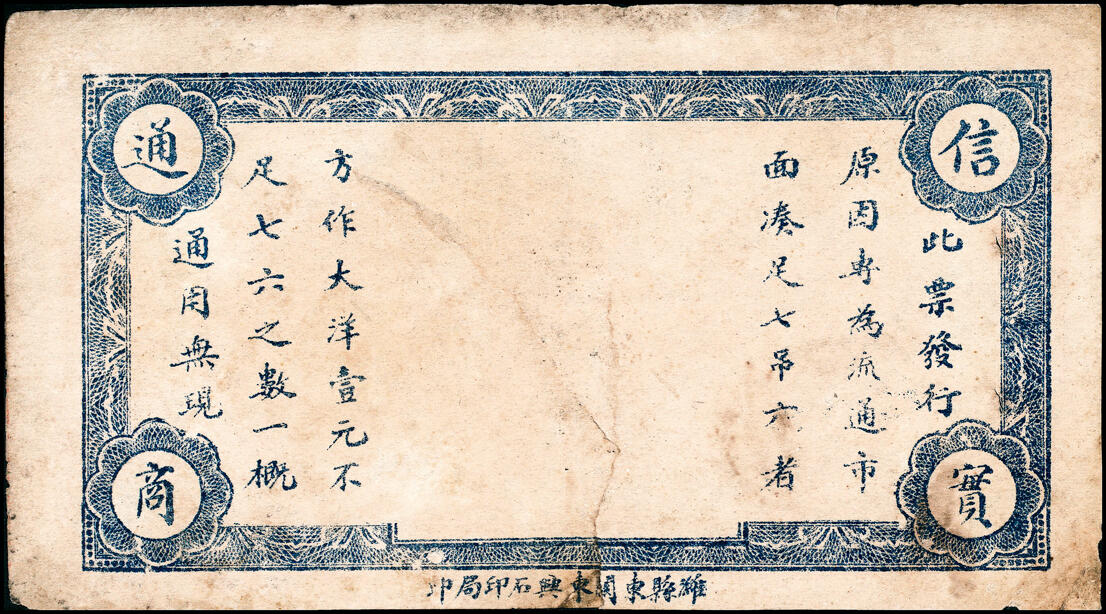 信實
通商
此票發行
原因專為流通市
面凑足七吊六者
方作大洋壹元不
足七六之數一概
通用無現
濰縣東関東興石印局印